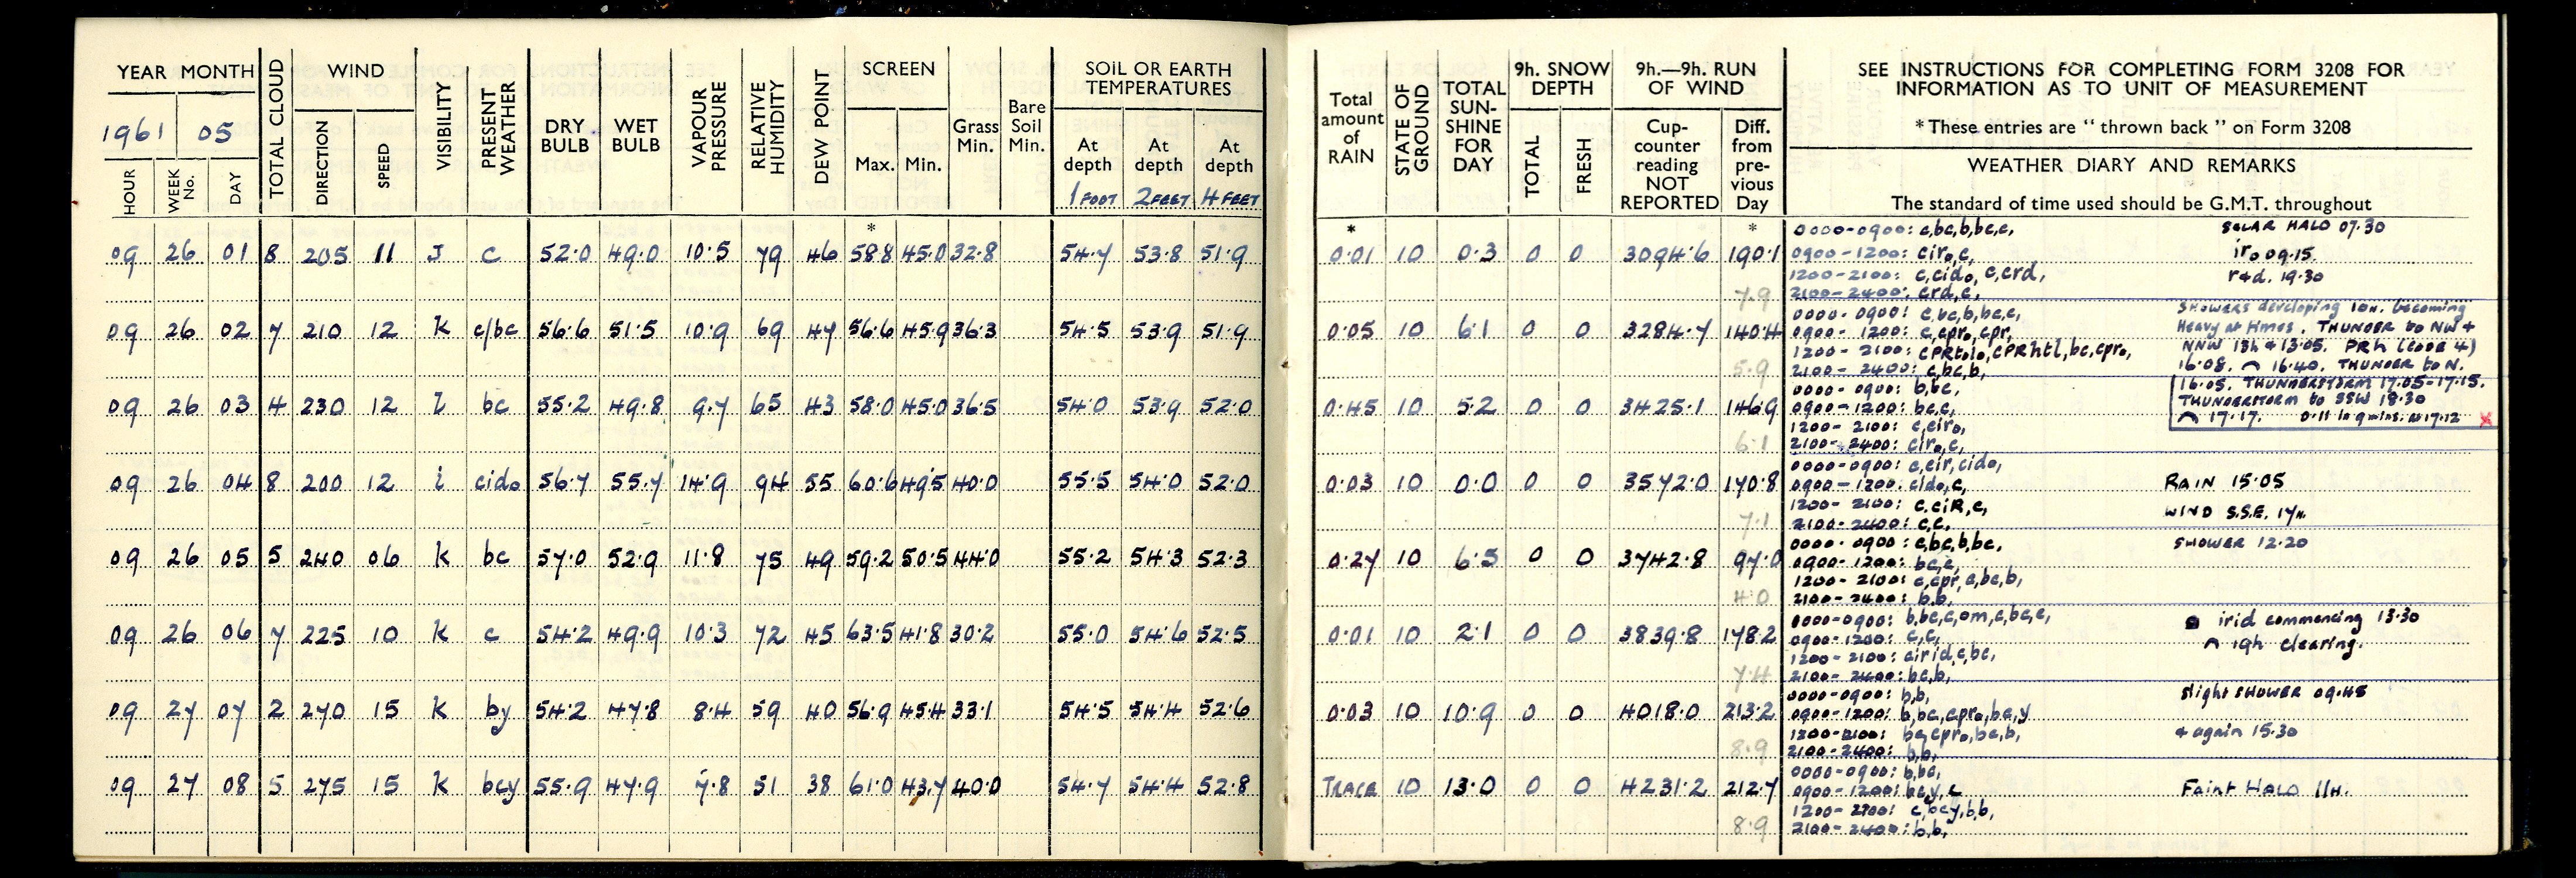 YEAR MONTH
1961 05
HOUR
WEEK No.
DAY
TOTAL CLOUD
WIND
DIRECTION
SPEED
VISIBILITY
PRESENT WEATHER
DRY BULB
WET BULB
VAPOUR PRESSURE
RELATIVE HUMIDITY
DEW POINT
SCREEN
Max. Min.
Grass Min.
Bare Soil Min.
SOIL OR EARTH TEMPERATURES
At depth At depth At depth
1 FOOT 2 FEET 4 FEET
*
09 26 01 8 205 11 J c 52.0 49.0 10.5 79 46 58.8 45.0 32.8 54.7 53.8 51.9
09 26 02 7 210 12 K c/bc 56.6 51.5 10.9 69 47 56.6 45.9 36.3 54.5 53.9 51.9
09 26 03 4 230 12 l bc 55.2 49.8 9.7 65 43 58.0 45.0 36.5 54.0 53.9 52.0
09 26 04 8 200 12 i cido 56.7 55.7 14.9 94 55 60.6 49.5 40.0 55.5 54.0 52.0
09 26 05 5 240 06 K bc 57.0 52.9 11.8 75 49 59.2 50.5 44.0 55.2 54.3 52.3
09 26 06 7 225 10 K c 54.2 49.9 10.3 72 45 63.5 41.8 30.2 55.0 54.6 52.5
09 27 07 2 270 15 K by 54.2 47.8 8.4 59 40 56.9 45.4 33.1 54.5 54.4 52.6
09 27 08 5 275 15 K bcy 55.9 47.9 7.8 51 38 61.0 43.7 40.0 54.7 54.4 52.8
Total amount of RAIN
STATE OF GROUND
TOTAL SUN-SHINE FOR DAY
9h. SNOW DEPTH
TOTAL
FRESH
9h.—9h. RUN OF WIND
Cup-counter reading NOT REPORTED
Diff. from pre-vious Day
SEE INSTRUCTIONS FOR COMPLETING FORM 3208 FOR
INFORMATION AS TO UNIT OF MEASUREMENT
* These entries are " thrown back " on Form 3208
WEATHER DIARY AND REMARKS
The standard of time used should be G.M.T. throughout
* *
0.01 10 0.3 0 0 3094.6 190.1
7.9
0000-0900: c,bc,b,bc,c, SOLAR HALO 07.30
0900-1200: ciro,c, iro 09.15.
1200-2100: c,cido, c,crd, r+d. 19.30
2100-2400: crd,c,
0.05 10 6.1 0 0 3284.7 140.4
5.9
0000-0900: c,bc,b,bc,c, SHOWERS developing 10H. becoming
0900-1200: c,cpro,cpr, Heavy at times. THUNDER to NW +
1200-2100: cPRtolo,cPRhtl,bc,cpro, NNW 13h & 13.05. PRh (CODE 4)
2100-2400: c,bc,b, 16.08. ⌒ 16.40. THUNDER to N.
16.05. THUNDERSTORM 17.05-17.15.
THUNDERSTORM to SSW 18.30
⌒ 17.17. 0.11 in 9 mins. at 17.12 X
0.45 10 5.2 0 0 3425.1 146.9
6.1
0000-0900: b,bc,
0900-1200: bc,c,
1200-2100: c,ciro,
2100-2400: ciro,c,
0.03 10 0.0 0 0 3572.0 170.8
7.1
0000-0900: c,cir,cido,
0900-1200: cido,c, RAIN 15.05
1200-2100: c,ciR,c, WIND S.S.E. 17H.
2100-2400: c,c,
0.27 10 6.5 0 0 3742.8 97.0
4.0
0000-0900: c,bc,b,bc, SHOWER 12.20
0900-1200: bc,c,
1200-2100: c,cpr,c,bc,b,
2100-2400: b,b,
0.01 10 2.1 0 0 3839.8 178.2
7.4
0000-0900: b,bc,c,om,c,bc,c, irid commencing 13.30
0900-1200: c,c, ⌒ 19h clearing.
1200-2100: cirid,c,bc,
2100-2400: bc,b,
0.03 10 10.9 0 0 4018.0 213.2
8.9
0000-0900: b,b, slight SHOWER 09.45
0900-1200: b,bc,cpro,bc,y
1200-2100: bc,cpro,bc,b, + again 15.30
2100-2400: b,b,
TRACE 10 13.0 0 0 4231.2 212.7
8.9
0000-0900: b,bc,
0900-1200: bcy,c Faint HALO 11H.
1200-2100: c,bcy,b,b,
2100-2400: b,b,